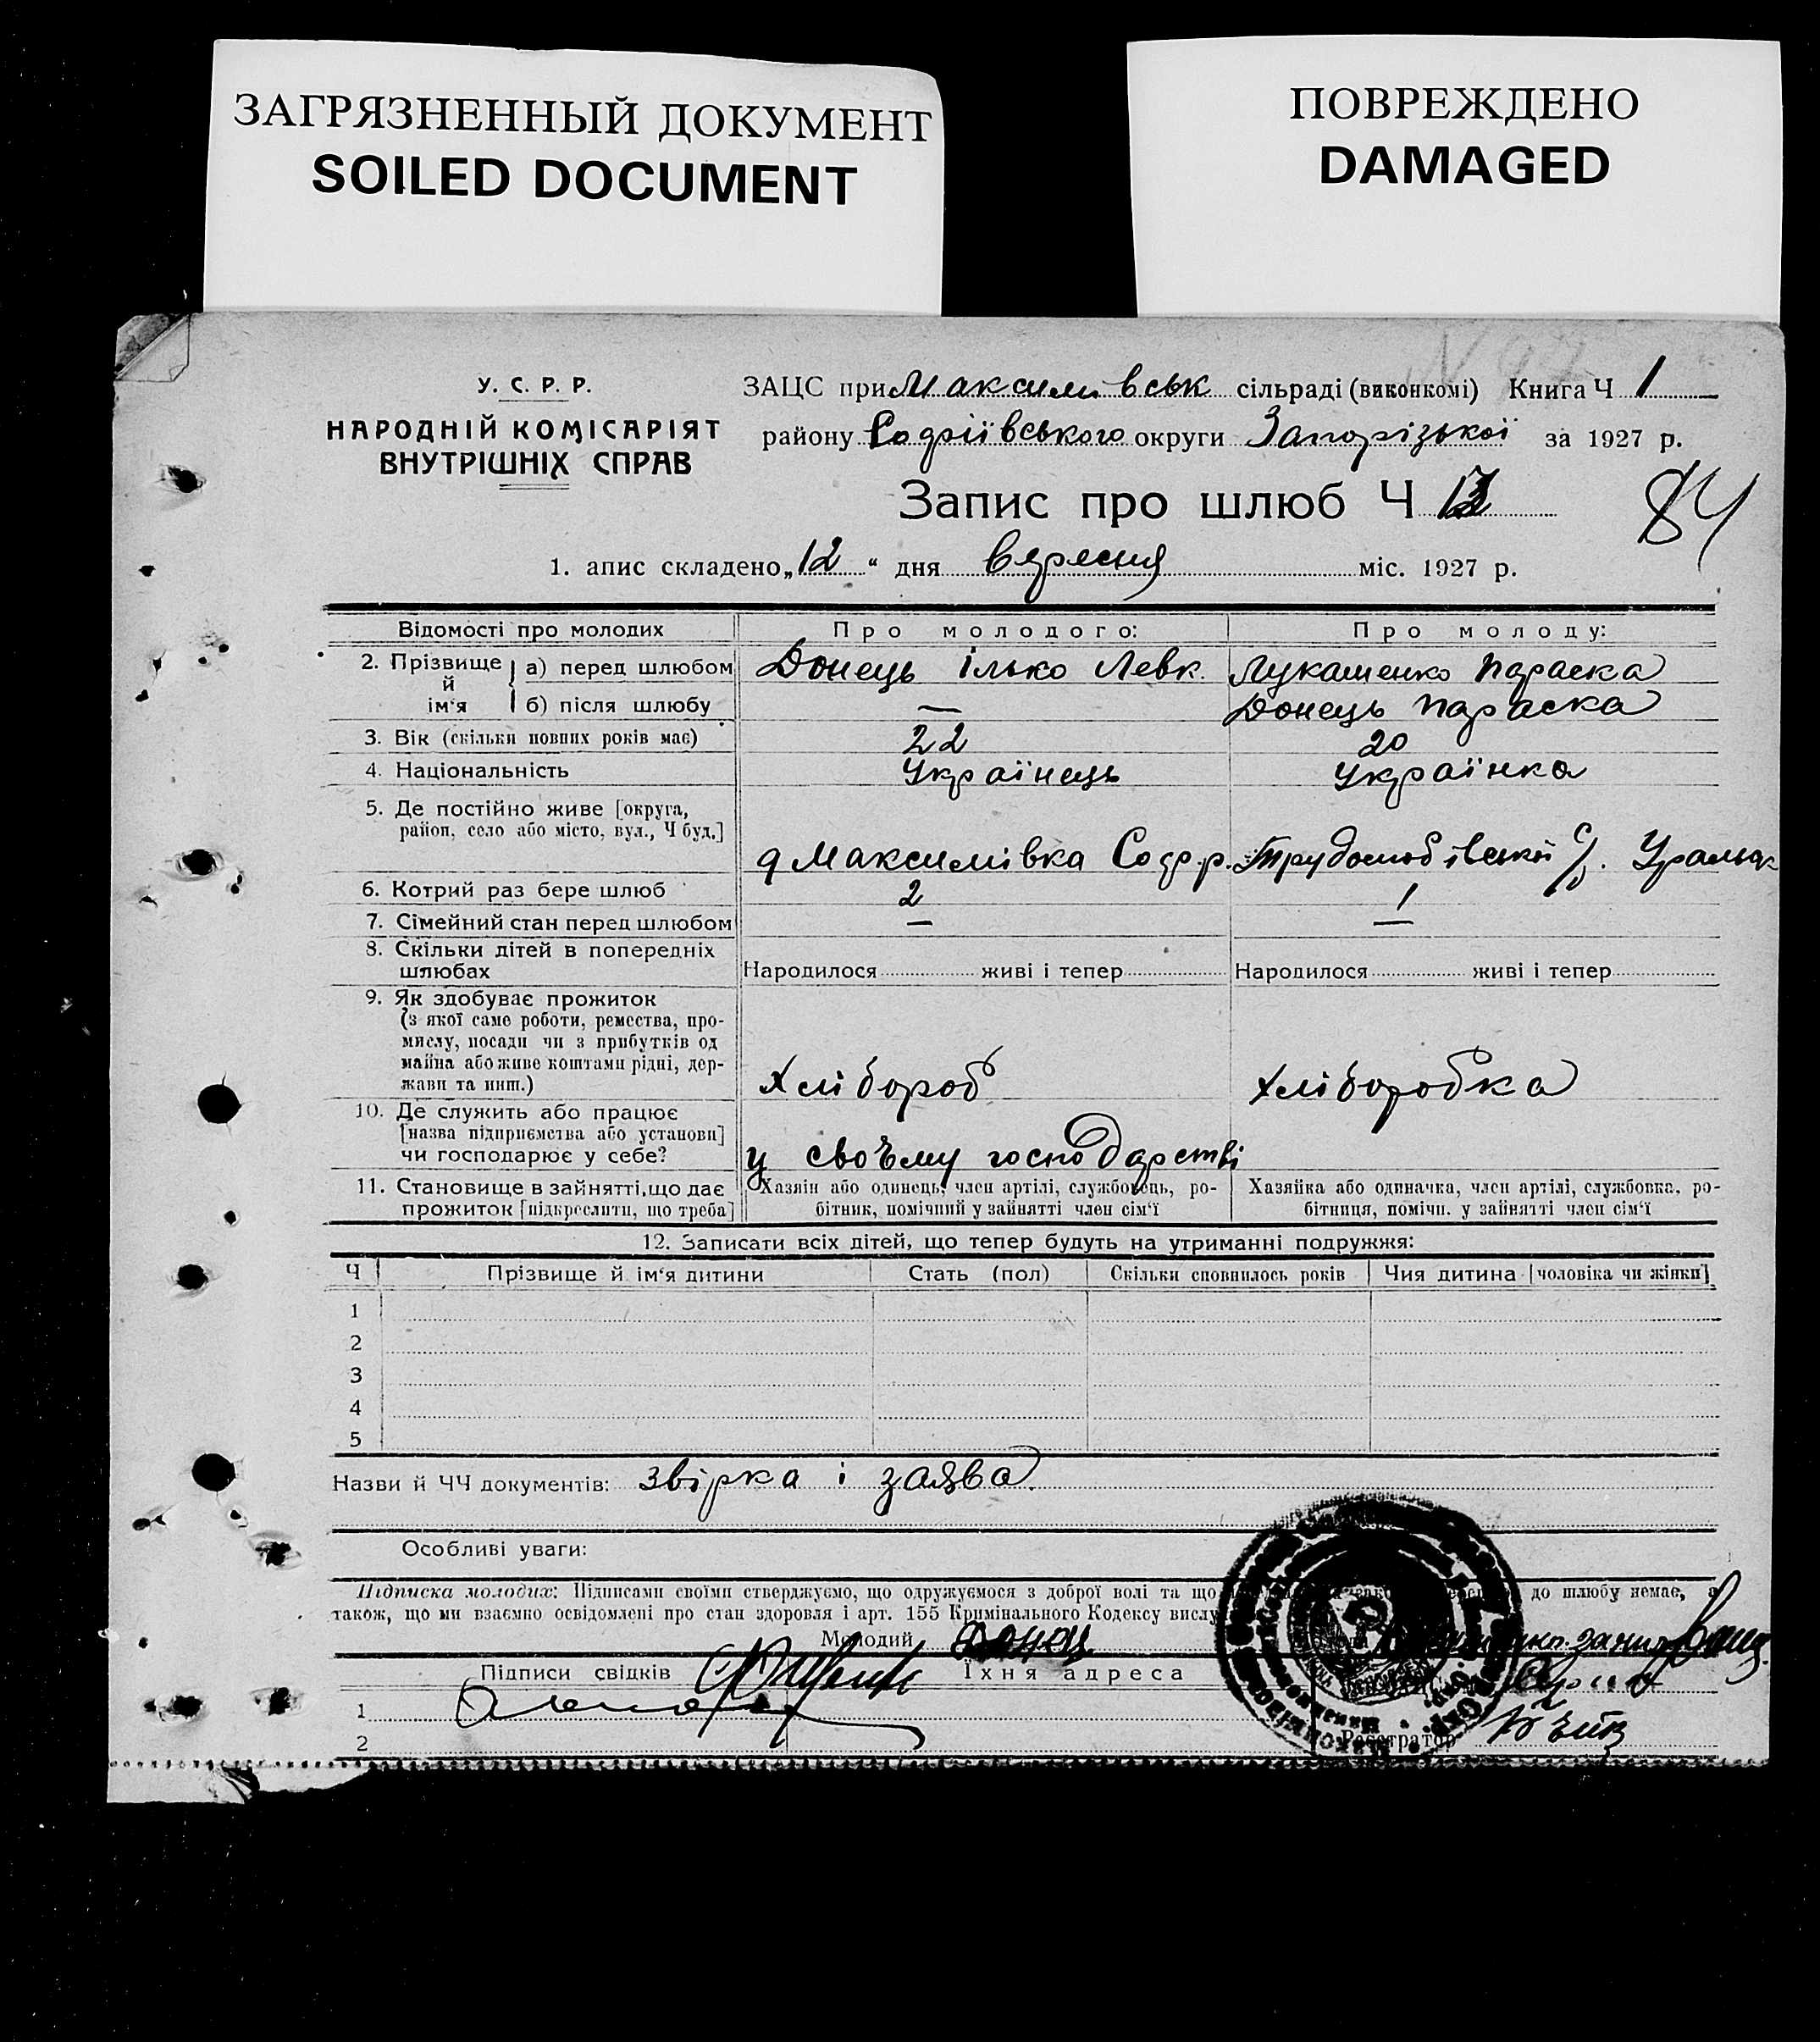 ЗАГРЯЗНЕННЫЙ ДОКУМЕНТ
SOILED DOCUMENT
ПОВРЕЖДЕНО
DAMAGED
У. С. Р. Р.
НАРОДНІЙ КОМІСАРІЯТ
ВНУТРІШНІХ СПРАВ
ЗАЦС при Максимівськ сільраді (виконкомі) Книга Ч 1
району Софіївського округи Запорізької за 1927 р.
Запис про шлюб Ч
84
1. апис складено „12“ дня вересня міс. 1927 р.
Відомості про молодих Про молодого: Про молоду:
2. Прізвище й ім'я а) перед шлюбом Донець Ілько Левк. Лукашенко Параска
б) після шлюбу — Донець Параска
3. Вік (скільки повних років має) 22 20
4. Національність Українець Українка
5. Де постійно живе [округа,
район, село або місто, вул., Ч буд.]
Максимівка Соф. р.
6. Котрий раз бере шлюб 2 1
7. Сімейний стан перед шлюбом — —
8. Скільки дітей в попередніх
шлюбах Народилося живі і тепер Народилося живі і тепер
9. Як здобуває прожиток
(з якої саме роботи, ремества, про-
мислу, посади чи з прибутків од
майна або живе коштами рідні, дер-
жави та инш.) Хлібороб Хліборобка
10. Де служить або працює
[назва підприємства або установи]
чи господарює у себе? у своъму господарстві
11. Становище в зайнятті, що дає Хазяїн або одинець, член артілі, службовець, ро- Хазяйка або одиначка, член артілі, службовка, ро-
прожиток [підкреслити, що треба] бітник, помічний у зайнятті член сім'ї бітниця, помічн. у зайнятті член сім'ї
12. Записати всіх дітей, що тепер будуть на утриманні подружжя:
Ч Прізвище й ім'я дитини Стать (пол) Скільки сповнилось років Чия дитина [чоловіка чи жінки]
1
2
3
4
5
Назви й ЧЧ документів: звірка і заява.
Особливі уваги:
Підписка молодих: Підписами своїми стверджуємо, що одружуємося з доброї волі та що до шлюбу немає, а
також, що ми взаємно освідомлені про стан здоровля і арт. 155 Кримінального Кодексу
Молодий Донец
Підписи свідків Їхня адреса
1
2 Реєстратор